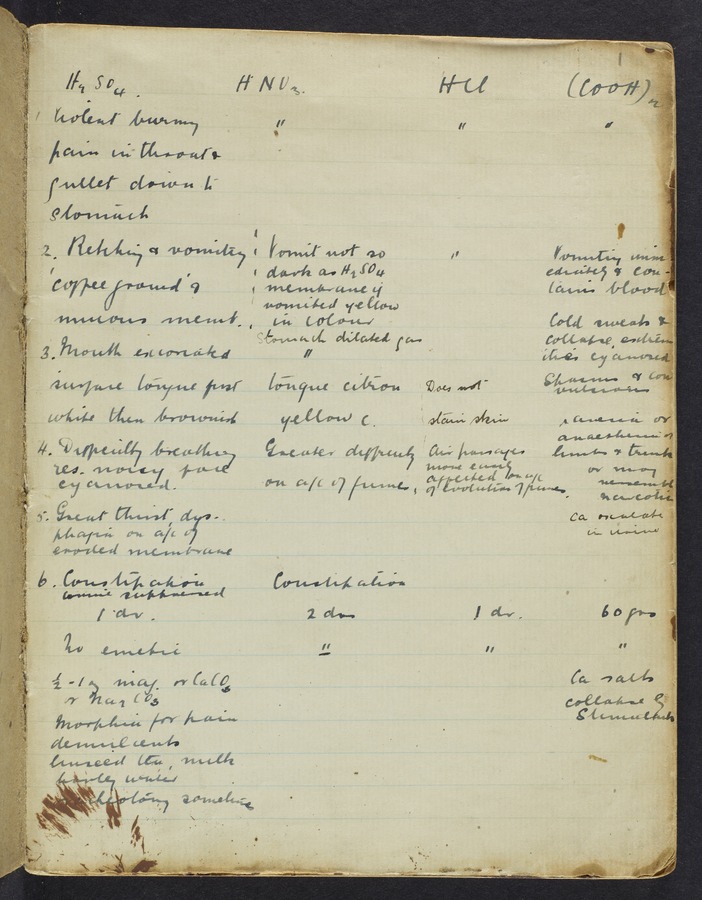 H2SO4. HNO3. HCl (COOH)2
1 Violent burning " " "
pain in throat &
gullet down to
stomach
2. Retching & vomiting Vomit not so " Vomiting imm-
dark as H2SO4 ediately & con-
'coffee ground' & membrane if tains blood
vomited yellow
mucous memb. in colour Cold sweats &
Stomach dilated gas collapse, extrem
3. Mouth excoriated " ities cyanosed
surface tongue first tongue citron Does not Spasms & con
vulsions
white then brownish yellow c. stain skin or
anaesthesia of
4. Difficulty breathing Greater difficulty Air passages limbs & trunk
res. noisy face more easily or may
cyanosed. on a/c of fumes, affected on a/c resemble
of evolution of fumes. narcotic
5. Great thirst, dys- Ca oxalate
phagia on a/c of in urine
eroded membrane
6. Constipation Constipation
urine suppressed
1 dr. 2 drs 1 dr. 60 grs
No emetic " " "
½-1 oz mag. or CaCO3 Ca salts
or Na2CO3 collapse by
Morphia for pain Stimulants
demulcents
linseed tea, milk
barley water
sometimes